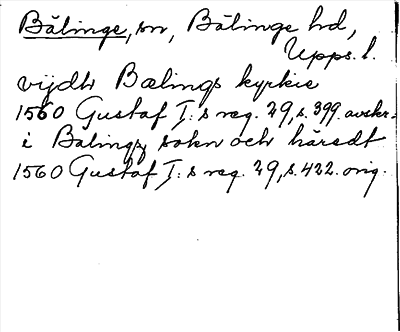 Bälinge, sn, Bälinge hd,
Upps. l.
vijdh Bælings kyrkie
1560 Gustaf I:s reg. 29, s. 399. avskr.
i Bälings sokn och häredt
1560 Gustaf I:s reg. 29, s. 422. orig.